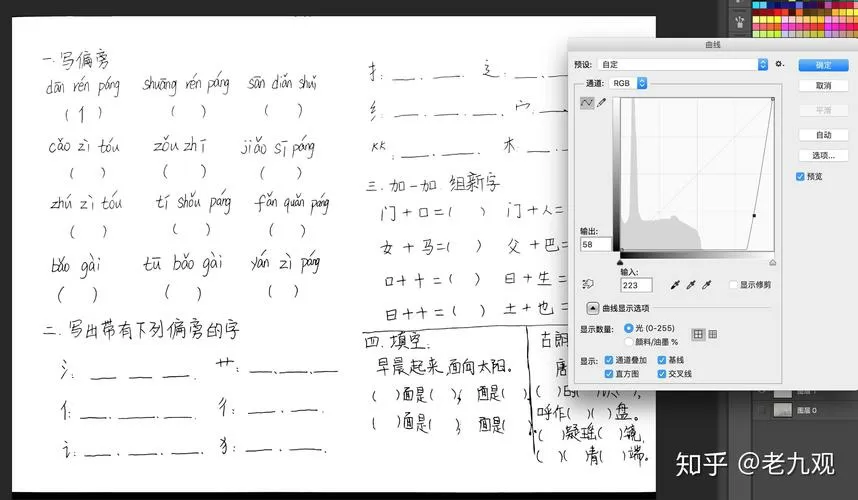 一.写偏旁
dān rén páng shuāng rén páng sān diǎn shuǐ
(亻) ( ) ( )
cǎo zì tóu zǒu zhī jiǎo sī páng
( ) ( ) ( )
zhú zì tóu tí shǒu páng fǎn quǎn páng
( ) ( ) ( )
bǎo gài tū bǎo gài yán zì páng
( ) ( ) ( )
二.写出带有下列偏旁的字
氵: 艹:
亻: 彳:
讠: 犭:
扌: 辶:
纟: 宀:
木:
三.加一加 组新字
门+口=( ) 门+人=
女+马=( ) 父+巴=
口+十=( ) 日+生=
日+十=( ) 土+也=
四.填空.
早晨起来,面向太阳。
( )面是( ), ( )面是( ),
( )面是( ), ( )面是( ).
古朗
唐
呼作( )( )盘。
( )疑瑶( )镜,
( )( )青( )端。
曲线
预设: 自定
确定
通道: RGB
取消
平滑
自动
选项...
预览
输出:
58
输入:
223
显示修剪
曲线显示选项
显示数量: 光 (0-255)
颜料/油墨 %
显示: 通道叠加 基线
直方图 交叉线
图层 1
图层 0
知乎 @老九观